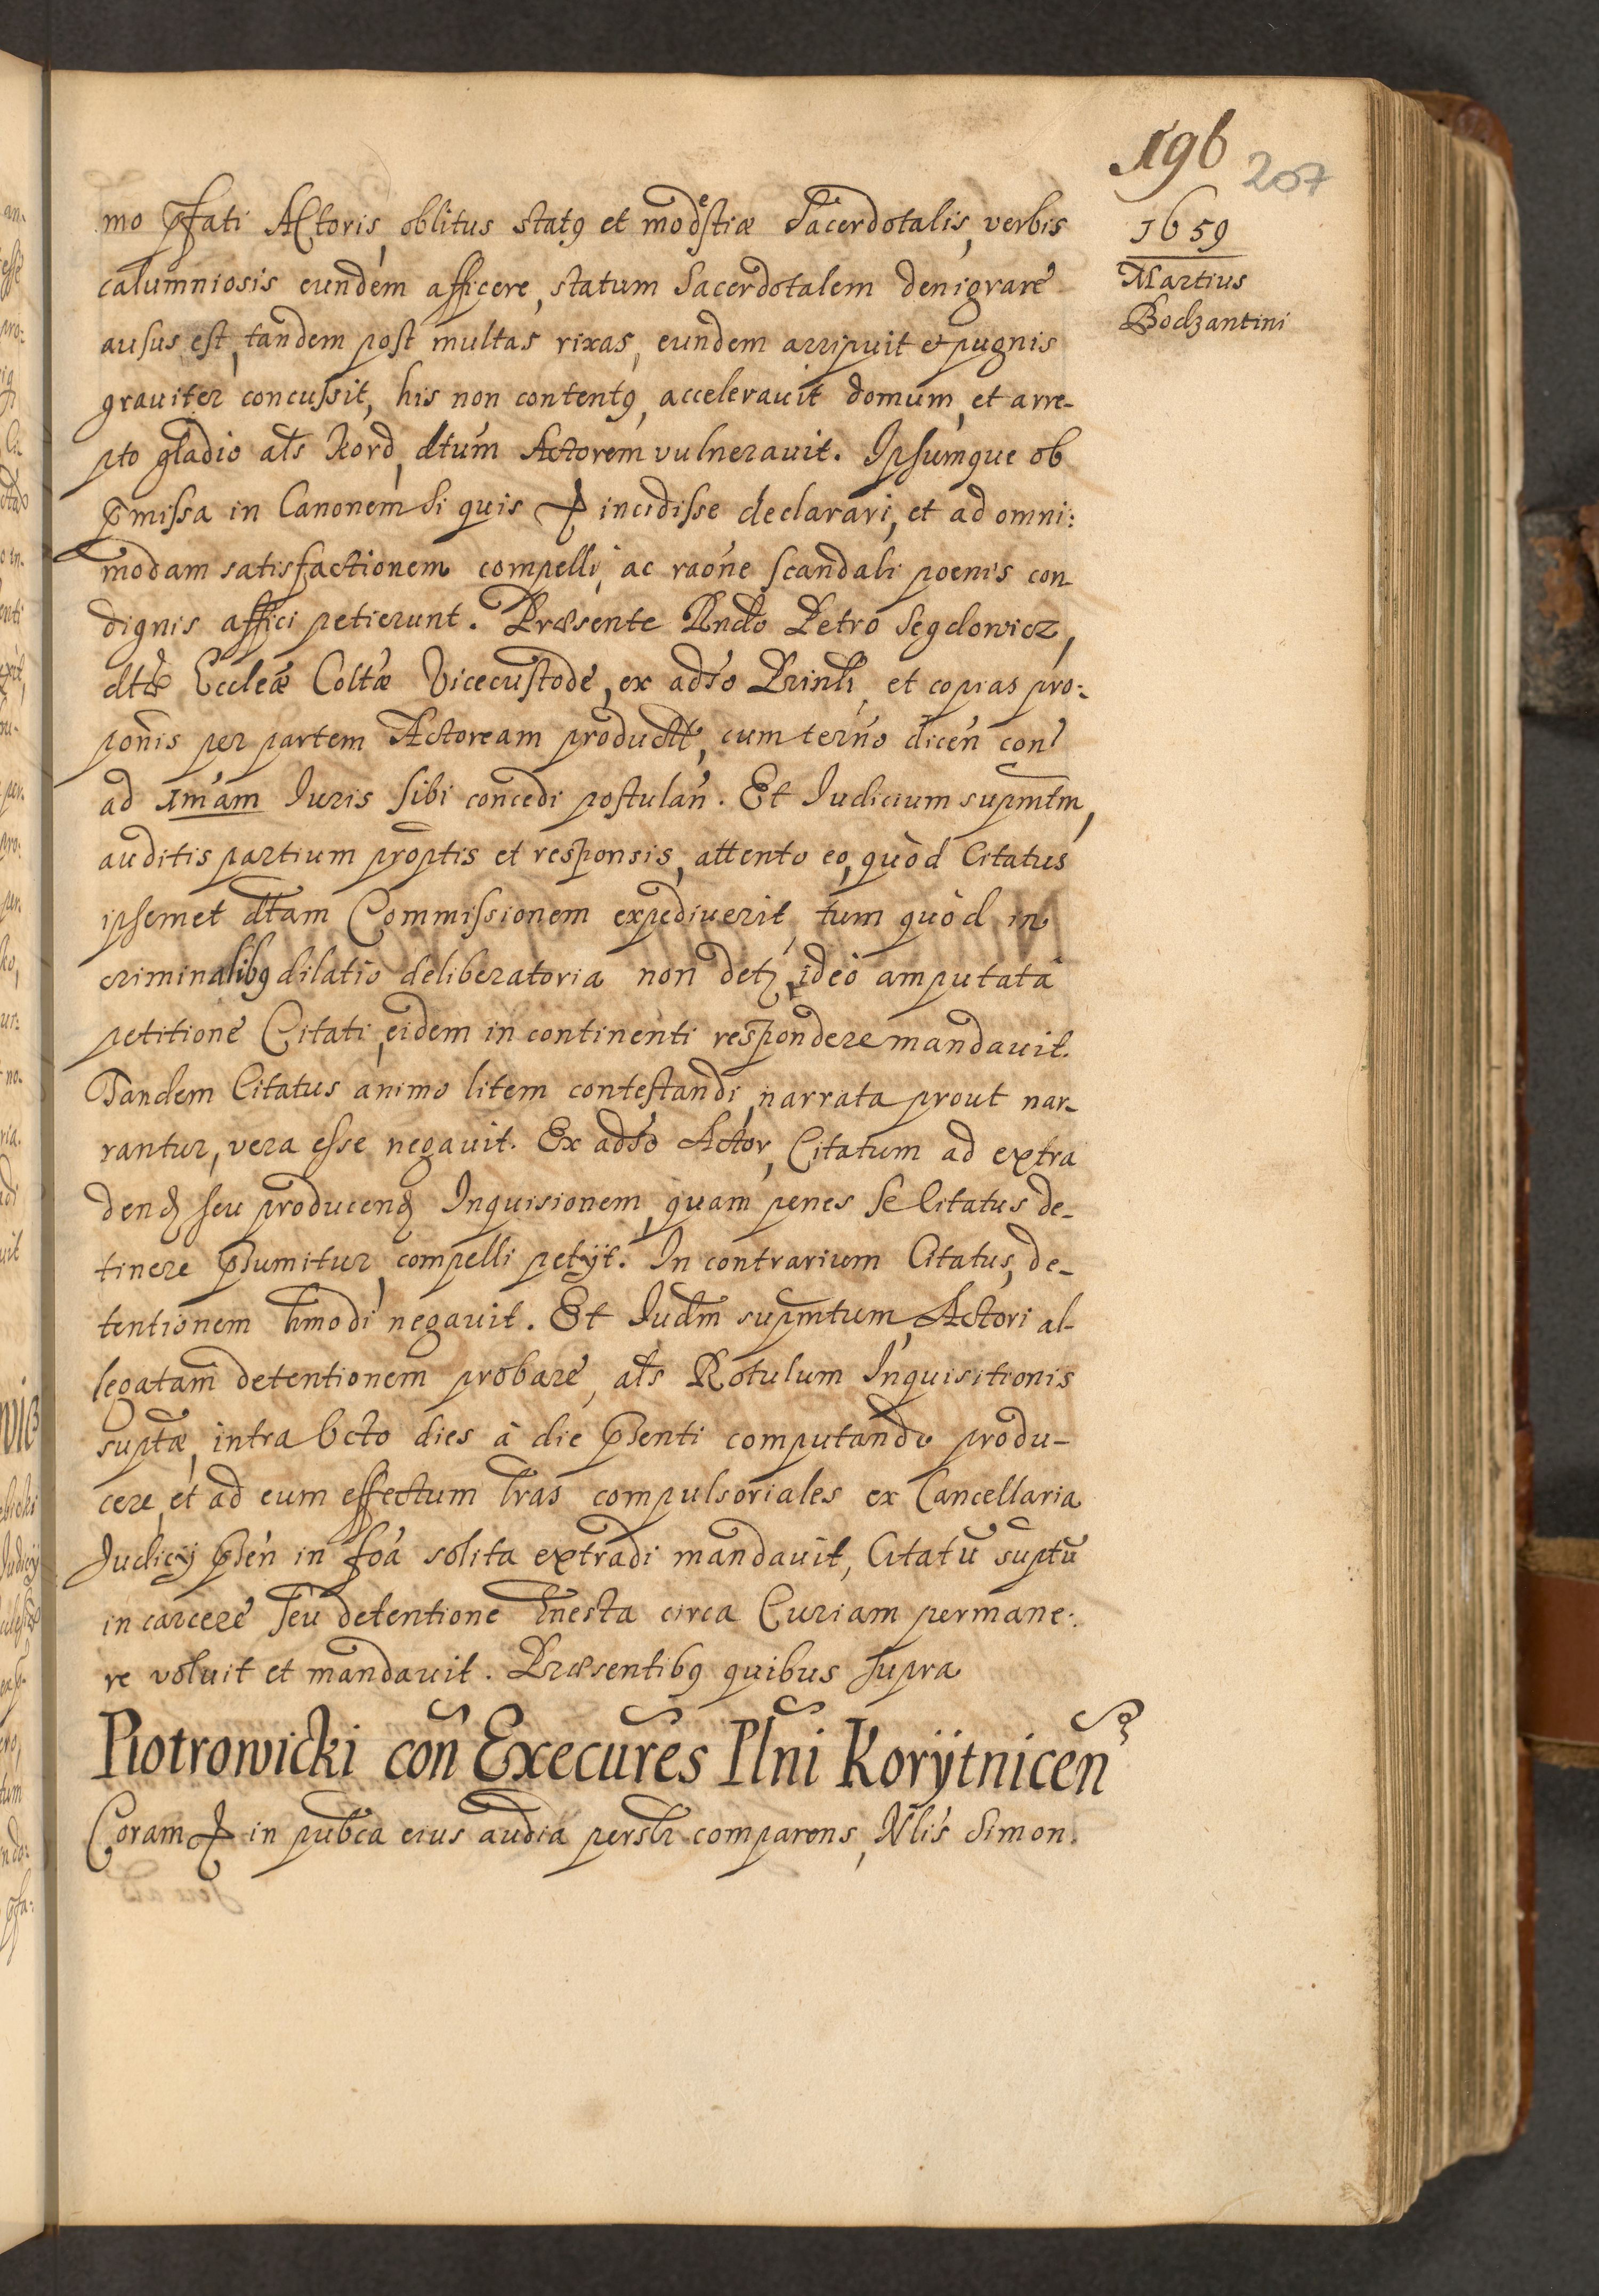 196 207
1659
Martius
Bodzantini
mo pfati Actoris, oblitus statq et modestiæ Sacerdotalis, verbis
calumniosis eundem afficere, statum Sacerdotalem denigrare
ausus est, tandem post multas rixas, eundem arripuit et pugnis
grauiter concussit, his non contentq, accelerauit domum, et arre-
pto gladio als Kord, dtum Actorem vulnerauit. Ipsumque ob
pmissa in Canonem Si quis & incidisse declarari, et ad omni:
modam satisfactionem compelli, ac raone scandali poenis con
dignis affici petierunt. Præsente Rndo Petro Segdowicz,
dtæ Eccleæ Coltæ Vicecustode, ex adso et copias pro:
ponis per partem Actoream productt, cum terno dicen con
ad 1mam Iuris sibi concedi postulan. Et Iudicium supmtm,
auditis partium proptis et responsis, attento eo, quòd Citatus
ipsemet dtam Commissionem expediuerit, tum quòd in
criminalibq dilatio deliberatoria non detz, ideò amputata
petitione Citati, eidem in continenti respondere mandauit.
Tandem Citatus animo litem contestandi, narrata prout nar-
rantur, vera esse negauit. Ex adso Actor, Citatum ad extra
dend seu producend Inquisionem, quam penes se Citatus de-
tinere psumitur, compelli petijt. In contrarium Citatus, de-
tentionem hmodi negauit. Et Iudm supmtum, Actori al-
legatam detentionem probare, als Rotulum Inquisitionis
suptæ, intra Octo dies à die psenti computando produ-
cere, et ad eum effectum lras compulsoriales ex Cancellaria
Iudicij psen in foa solita extradi mandauit, Citatu suptu
in carcere seu detentione hnesta circa Curiam permane:
re voluit et mandauit. Præsentibq quibus supra
Piotrowicki con Execures Plni Korijtnicen
Coram & in pubca eius audia persli comparens, Nlis Simon.